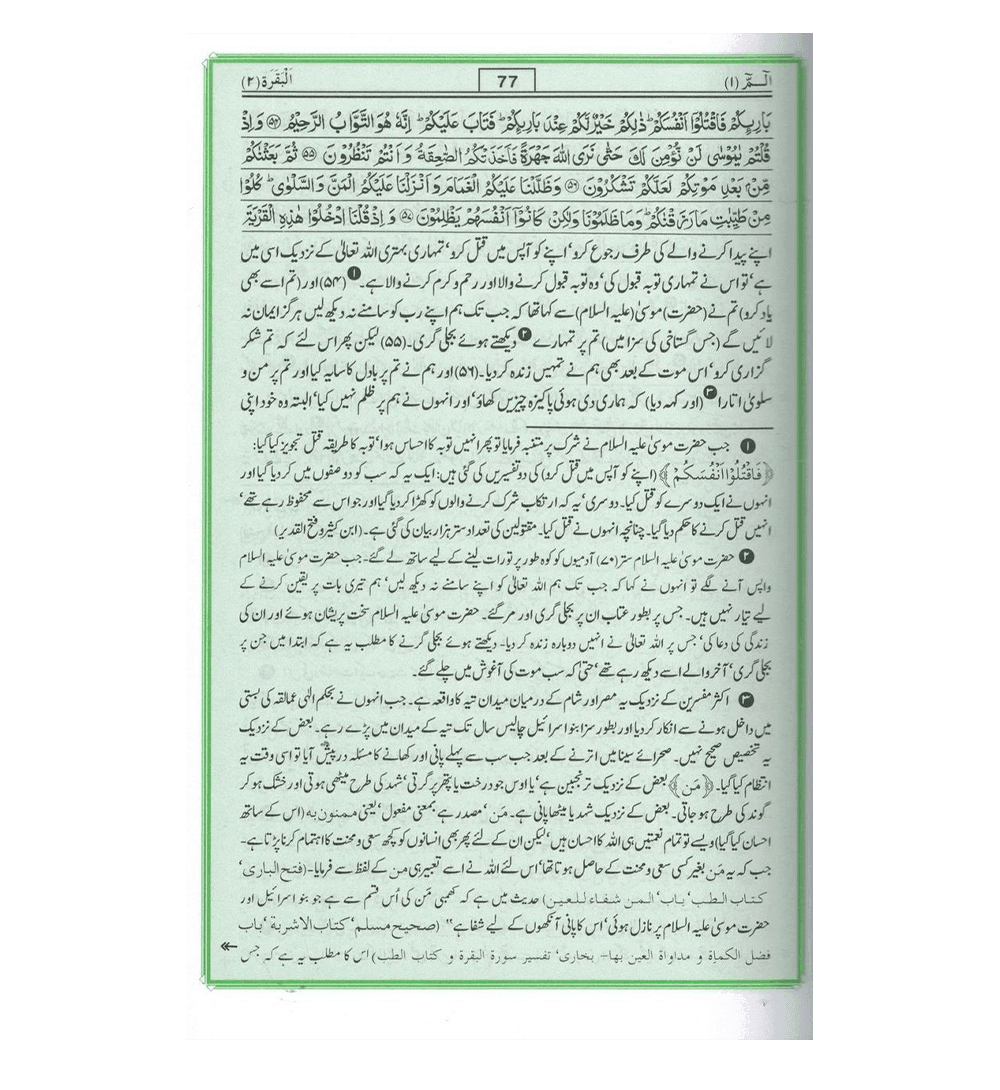 الٓـمّٓ (١) 77 اَلْبَقَرَة (٢)
بَارِىِٕكُمْ فَاقْتُلُوْٓا اَنْفُسَكُمْ ؕ ذٰلِكُمْ خَيْرٌ لَّكُمْ عِنْدَ بَارِىِٕكُمْ ؕ فَتَابَ عَلَيْكُمْ ؕ اِنَّهٗ هُوَ التَّوَّابُ الرَّحِيْمُ ﴿۵۴﴾ وَ اِذْ
قُلْتُمْ يٰمُوْسٰى لَنْ نُّؤْمِنَ لَكَ حَتّٰى نَرَى اللّٰهَ جَهْرَةً فَاَخَذَتْكُمُ الصّٰعِقَةُ وَ اَنْتُمْ تَنْظُرُوْنَ ﴿۵۵﴾ ثُمَّ بَعَثْنٰكُمْ
مِّنْۢ بَعْدِ مَوْتِكُمْ لَعَلَّكُمْ تَشْكُرُوْنَ ﴿۵۶﴾ وَ ظَلَّلْنَا عَلَيْكُمُ الْغَمَامَ وَ اَنْزَلْنَا عَلَيْكُمُ الْمَنَّ وَ السَّلْوٰى ؕ كُلُوْا
مِنْ طَيِّبٰتِ مَا رَزَقْنٰكُمْ ؕ وَ مَا ظَلَمُوْنَا وَ لٰكِنْ كَانُوْٓا اَنْفُسَهُمْ يَظْلِمُوْنَ ﴿۵۷﴾ وَ اِذْ قُلْنَا ادْخُلُوْا هٰذِهِ الْقَرْيَةَ
اپنے پیدا کرنے والے کی طرف رجوع کرو' اپنے کو آپس میں قتل کرو' تمہاری بہتری اللہ تعالیٰ کے نزدیک اسی میں
ہے' تو اس نے تمہاری توبہ قبول کی' وہ توبہ قبول کرنے والا اور رحم و کرم کرنے والا ہے۔ ❶ (۵۴) اور (تم اسے بھی
یاد کرو) تم نے (حضرت) موسیٰ (علیہ السلام) سے کہا تھا کہ جب تک ہم اپنے رب کو سامنے نہ دیکھ لیں ہرگز ایمان نہ
لائیں گے (جس گستاخی کی سزا میں) تم پر تمہارے ❷ دیکھتے ہوئے بجلی گری۔ (۵۵) لیکن پھر اس لئے کہ تم شکر
گزاری کرو' اس موت کے بعد بھی ہم نے تمہیں زندہ کر دیا۔ (۵۶) اور ہم نے تم پر بادل کا سایہ کیا اور تم پر من و
سلویٰ اتارا ❸ (اور کہہ دیا) کہ ہماری دی ہوئی پاکیزہ چیزیں کھاؤ' اور انہوں نے ہم پر ظلم نہیں کیا' البتہ وہ خود اپنی
❶ جب حضرت موسیٰ علیہ السلام نے شرک پر متنبہ فرمایا تو پھر انہیں توبہ کا احساس ہوا' توبہ کا طریقہ قتل تجویز کیا گیا:
﴿فَاقْتُلُوْٓا اَنْفُسَكُمْ﴾ (اپنے کو آپس میں قتل کرو) کی دو تفسیریں کی گئی ہیں: ایک یہ کہ سب کو دو صفوں میں کر دیا گیا اور
انہوں نے ایک دوسرے کو قتل کیا۔ دوسری' یہ کہ ارتکاب شرک کرنے والوں کو کھڑا کر دیا گیا اور جو اس سے محفوظ رہے تھے'
انہیں قتل کرنے کا حکم دیا گیا۔ چنانچہ انہوں نے قتل کیا۔ مقتولین کی تعداد ستر ہزار بیان کی گئی ہے۔ (ابن کثیر و فتح القدیر)
❷ حضرت موسیٰ علیہ السلام ستر (۷۰) آدمیوں کو کوہ طور پر تورات لینے کے لیے ساتھ لے گئے۔ جب حضرت موسیٰ علیہ السلام
واپس آنے لگے تو انہوں نے کہا کہ جب تک ہم اللہ تعالیٰ کو اپنے سامنے نہ دیکھ لیں' ہم تیری بات پر یقین کرنے کے
لیے تیار نہیں ہیں۔ جس پر بطور عتاب ان پر بجلی گری اور مر گئے۔ حضرت موسیٰ علیہ السلام سخت پریشان ہوئے اور ان کی
زندگی کی دعا کی' جس پر اللہ تعالیٰ نے انہیں دوبارہ زندہ کر دیا۔ دیکھتے ہوئے بجلی گرنے کا مطلب یہ ہے کہ ابتدا میں جن پر
بجلی گری' آخر والے اسے دیکھ رہے تھے' حتیٰ کہ سب موت کی آغوش میں چلے گئے۔
❸ اکثر مفسرین کے نزدیک یہ مصر اور شام کے درمیان میدان تیہ کا واقعہ ہے۔ جب انہوں نے بحکم الٰہی عمالقہ کی بستی
میں داخل ہونے سے انکار کر دیا اور بطور سزا بنو اسرائیل چالیس سال تک تیہ کے میدان میں پڑے رہے۔ بعض کے نزدیک
یہ تخصیص صحیح نہیں۔ صحرائے سینا میں اترنے کے بعد جب سب سے پہلے پانی اور کھانے کا مسئلہ درپیش آیا تو اسی وقت یہ
انتظام کیا گیا۔ ﴿مَن﴾ بعض کے نزدیک ترنجبین ہے' یا اوس جو درخت یا پتھر پر گرتی' شہد کی طرح میٹھی ہوتی اور خشک ہو کر
گوند کی طرح ہو جاتی۔ بعض کے نزدیک شہد یا میٹھا پانی ہے۔ مَن' مصدر ہے بمعنی مفعول' یعنی ممنون به (اس کے ساتھ
احسان کیا گیا) ویسے تو تمام نعمتیں ہی اللہ کا احسان ہیں' لیکن ان کے لئے پھر بھی انسانوں کو کچھ سعی و محنت کا اہتمام کرنا پڑتا ہے۔
جب کہ یہ مَن بغیر کسی سعی و محنت کے حاصل ہوتا تھا' اس لئے اللہ نے اسے تعبیر ہی من کے لفظ سے فرمایا۔ (فتح الباری'
کتاب الطب' باب' المن شفاء للعین) حدیث میں ہے کہ کھمبی مَن کی اُس قسم سے ہے جو بنو اسرائیل اور
حضرت موسیٰ علیہ السلام پر نازل ہوئی' اس کا پانی آنکھوں کے لیے شفا ہے" (صحیح مسلم' کتاب الاشربة' باب
فضل الکمأة و مداواة العین بها۔ بخاری' تفسیر سورة البقرة و کتاب الطب) اس کا مطلب یہ ہے کہ جس